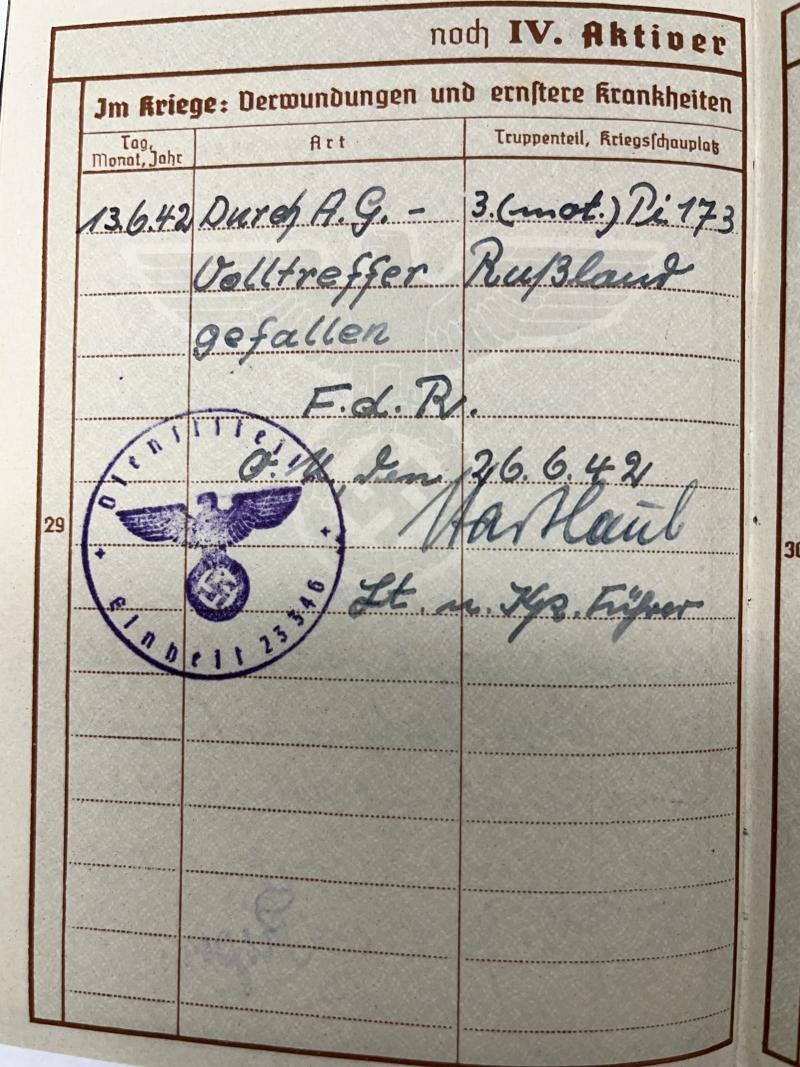 noch IV. Aktiver
Im Kriege: Verwundungen und ernstere Krankheiten
Tag, Monat, Jahr Art Truppenteil, Kriegsschauplatz
13.6.42 Durch A.G.- 3.(mot.) Pi 173
Volltreffer Rußland
gefallen
F.d.R.
O.U., den 26.6.42
Lt. u. Kp. Führer
Dienststelle
Einheit 23 346
29
30